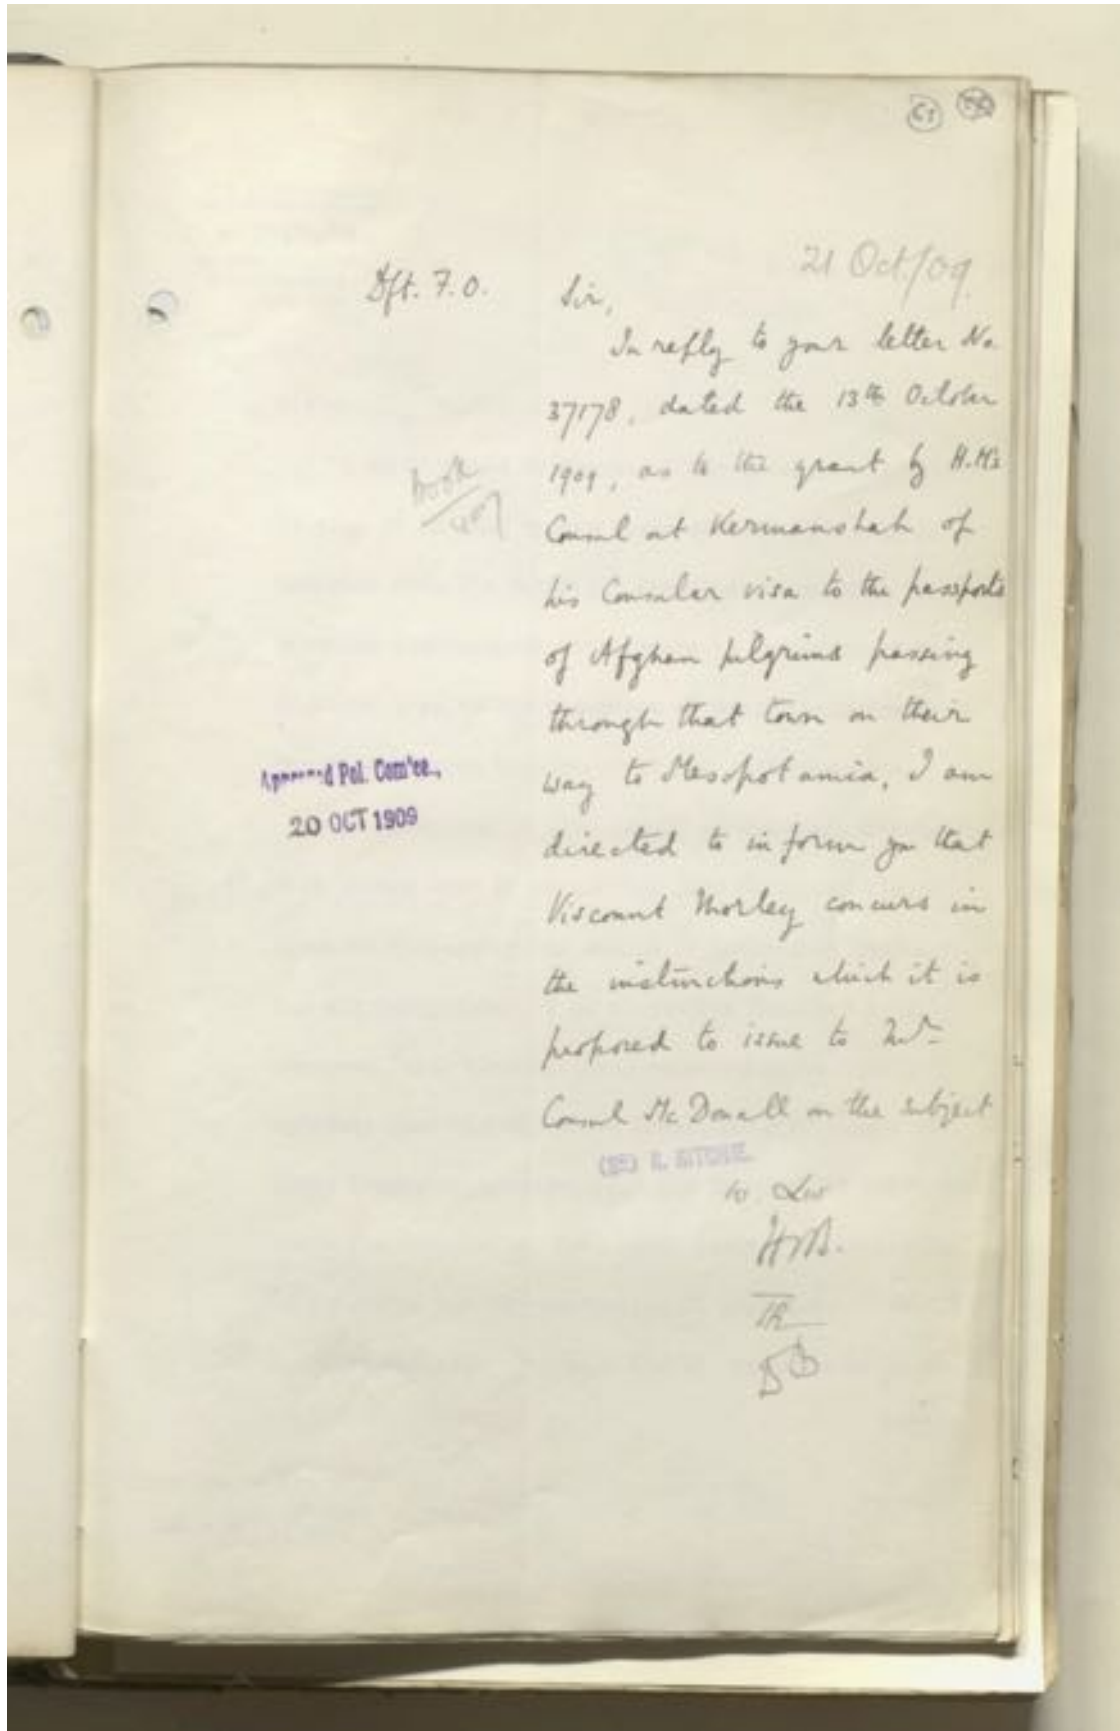 21 Oct/09.
Dft. F.O.
Sir,
In reply to your letter No
37178, dated the 13th October
1909, as to the grant by H.M's
Consul at Kermanshah of
his Consular visa to the passports
of Afghan pilgrims passing
through that town on their
way to Mesopotamia, I am
directed to inform you that
Viscount Morley concurs in
the instructions which it is
proposed to issue to Mr
Consul McDouall on the subject
Approved Pol. Com'ee.,
20 OCT 1909
(Sd) R. RITCHIE.